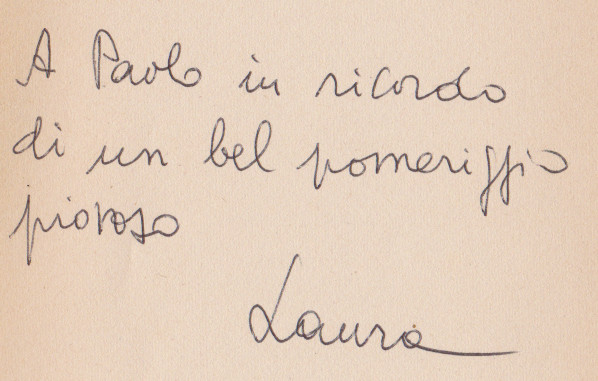 A Paolo in ricordo
di un bel pomeriggio
piovoso
Laura